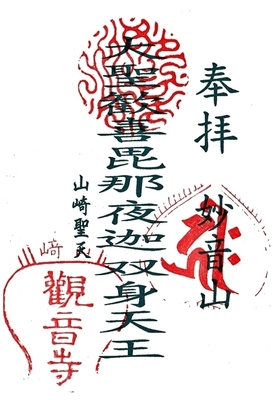 奉拝
妙音山
大聖歡喜毘那夜迦双身天王
山崎聖天
觀音寺